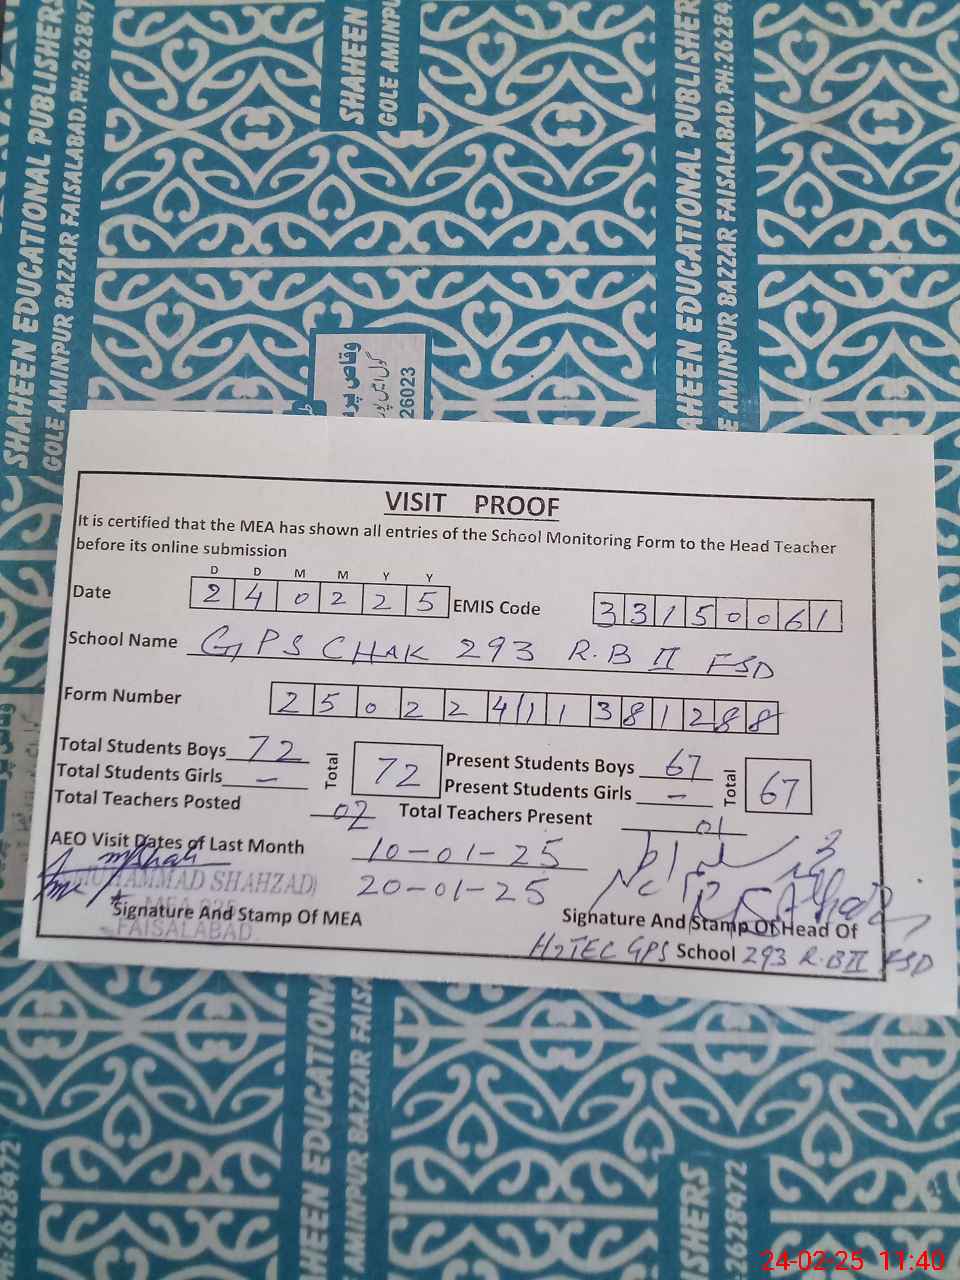 SHAHEEN EDUCATIONAL PUBLISHERS
GOLE AMINPUR BAZZAR FAISALABAD.PH:262847
SHAHEEN
GOLE AMINPU
AHEEN EDUCATIONAL PUBLISHER
E AMINPUR BAZZAR FAISALABAD.PH:26284
وقاص
26023
VISIT PROOF
It is certified that the MEA has shown all entries of the School Monitoring Form to the Head Teacher
before its online submission
D D M M Y Y
Date 2 4 0 2 2 5 EMIS Code 3 3 1 5 0 0 6 1
School Name GPS CHAK 293 R.B II FSD
Form Number 2 5 0 2 2 4 1 1 1 3 8 1 2 8 8
Total Students Boys 72 Total 72 Present Students Boys 67 Total 67
Total Students Girls - Present Students Girls -
Total Teachers Posted 02 Total Teachers Present 01
AEO Visit Dates of Last Month 10-01-25
20-01-25
MUHAMMAD SHAHZAD
FAISALABAD
Signature And Stamp Of MEA
Signature And Stamp Of Head Of
School
GPS 293 R.B II FSD
HEEN EDUCATIONA
AMINPUR BAZZAR FAISA
H:2628472
SHERS
2628472
24-02-25 11:40